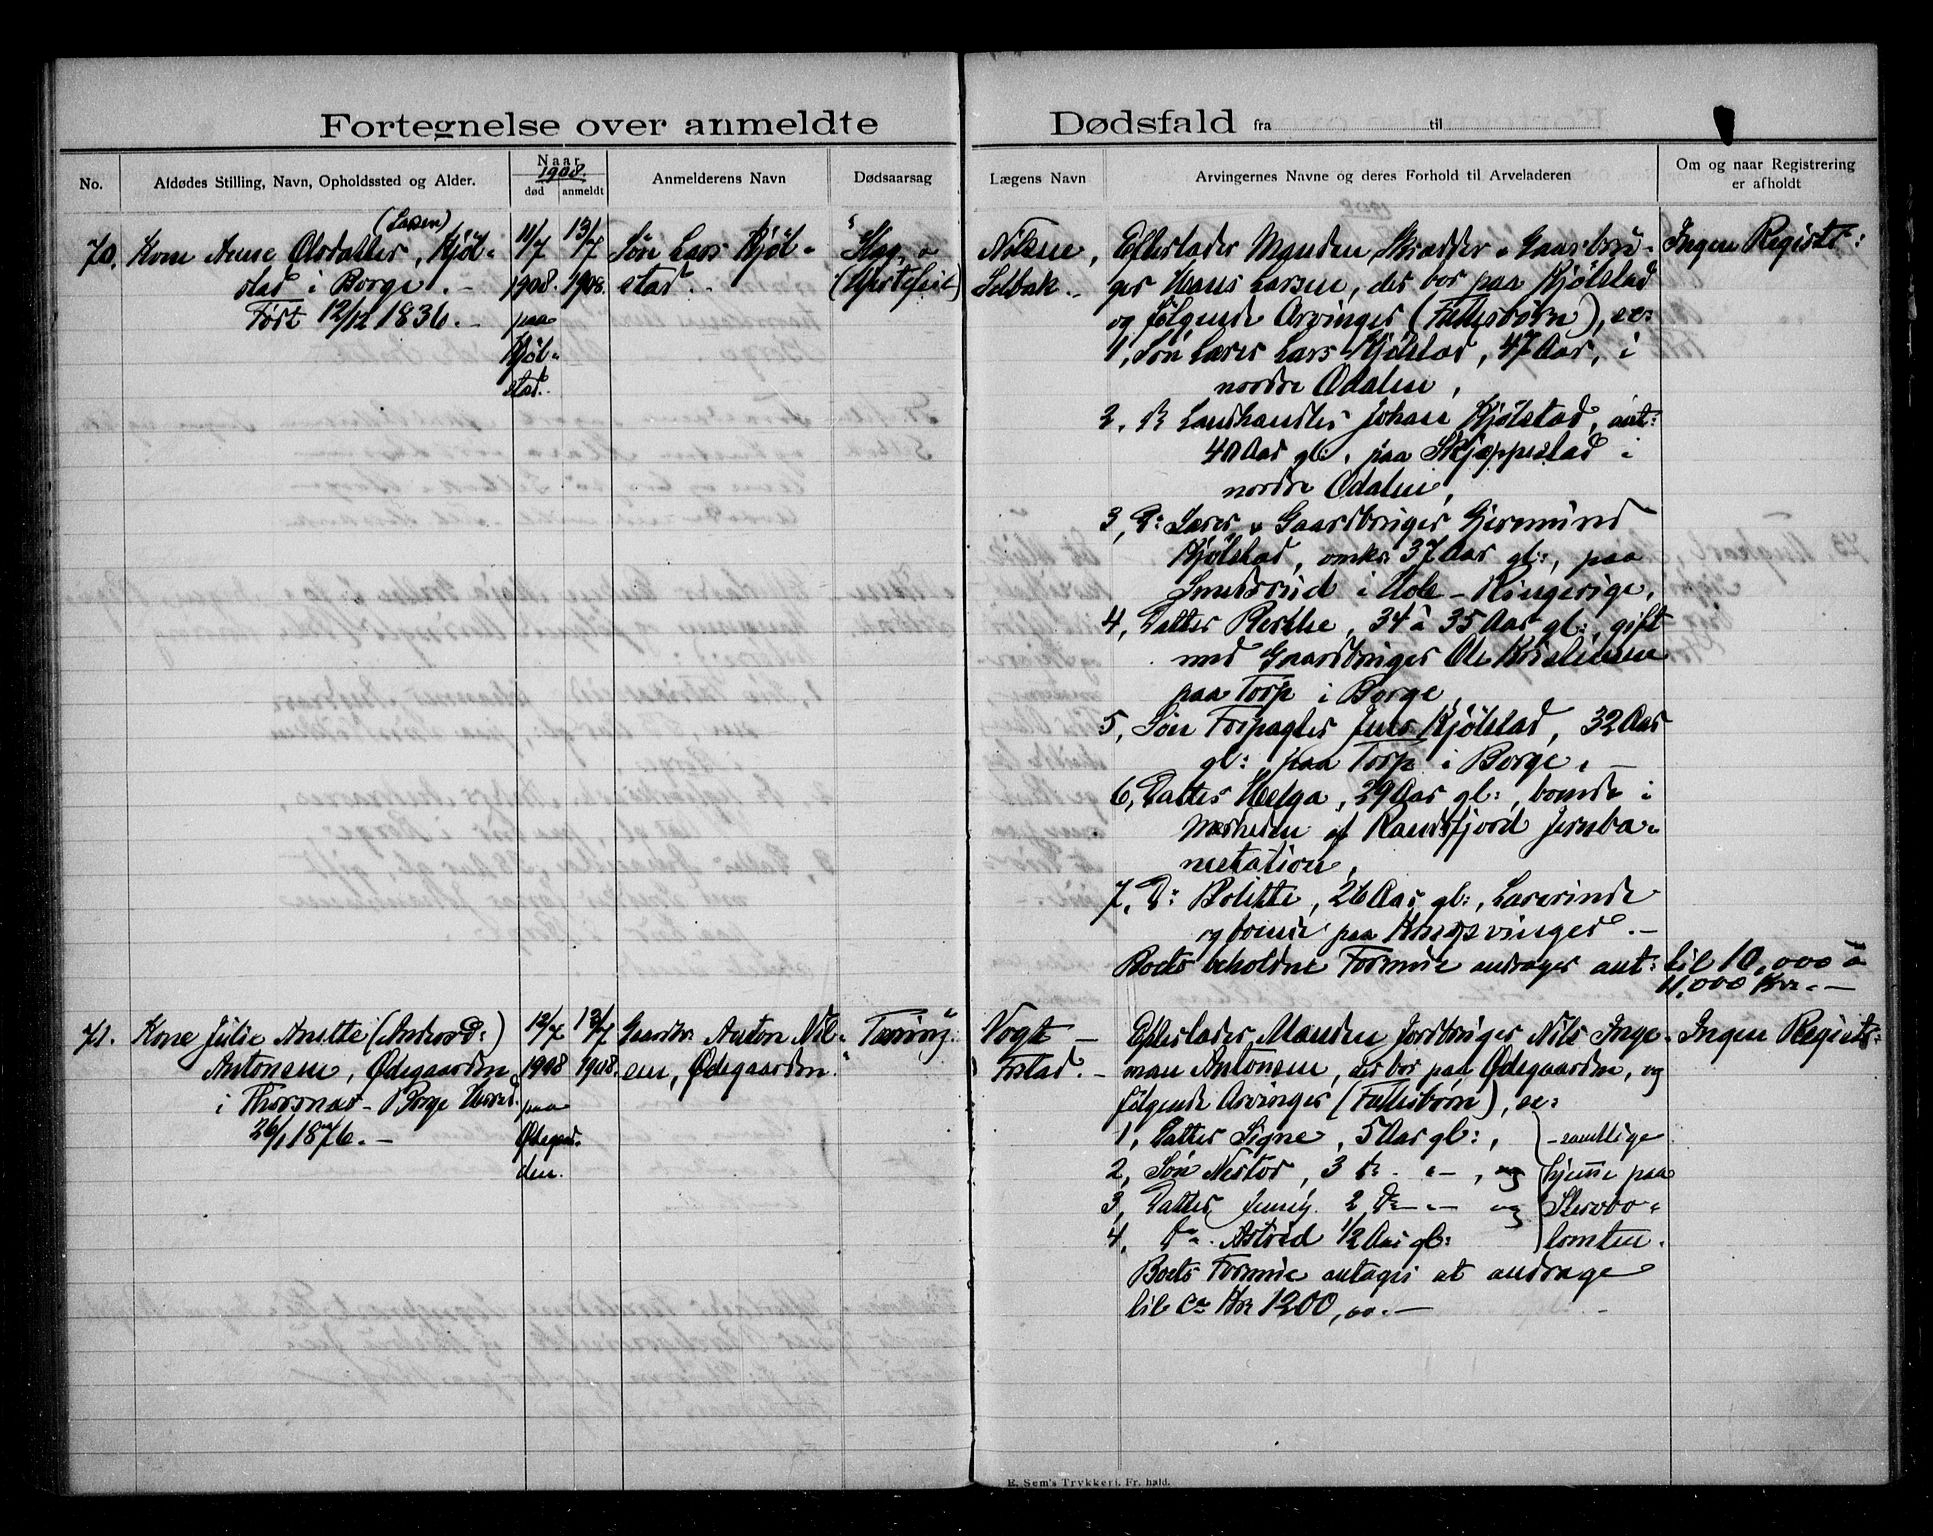 Fortegnelse over anmeldte Dødsfald fra til
No.
Afdødes Stilling, Navn, Opholdssted og Alder.
Naar
1908.
død anmeldt
Anmelderens Navn
Dødsaarsag
Lægens Navn
Arvingernes Navne og deres Forhold til Arveladeren
Om og naar Registrering
er afholdt
70.
(Larsen)
Kone Anne Olsdatter, Kjøl-
stad i Borge. -
Født 12/12 1836. -
11/7
1908.
paa
Kjøl-
stad.
13/7
1908.
Søn Lars Kjøl-
stad. -
"Slag, o
(Hjertefeil)
Nilsen,
Selbak. -
Efterlader Manden, Skrædder o Gaardbru-
ger Hans Larsen, der bor paa Kjølstad
og følgende Arvinger (Fællesbørn), se:
1, Søn Lærer Lars Kjølstad, 47 Aar, i
nordre Odalen,
2, Dº Landhandler Johan Kjølstad, ant:
40 Aar gl:, paa Skjæppestad i
nordre Odalen,
3, Dº: Lærer & Gaardbruger Gjermund
Kjølstad, omkr: 37 Aar gl:, paa
Smedsrud i Hole - Ringerige,
4, Datter Berthe, 34 à 35 Aar gl:, gift
med Gaardbruger Ole Kristiansen
paa Torp i Borge,
5, Søn Forpagter Jens Kjølstad, 32 Aar
gl: paa Torp i Borge. -
6, Datter Helga, 29 Aar gl:, boende i
Nærheden af Randsfjord Jernba-
nestation,
7, Dº: Bolette, 26 Aar gl:, Lærerinde
og boende paa Kongsvinger. -
Boets beholdne Formue andrager ant: til 10,000 à
11,000 Kr. -
Ingen Registr:
71.
Kone Julie Anette (Andersd:)
Antonsen, Ødegaarden
i Thorsnæs - Borge Herred.
26/1 1876. -
12/7
1908
paa
Ødegaar-
den.
13/7
1908.
Gaardbr. Anton Nil-
sen, Ødegaarden.
"Tæring."
Vogt -
F.stad. -
Efterlader Manden Jordbruger Nils Inge-
man Antonsen, der bor paa Ødegaarden, og
følgende Arvinger (Fællesbørn), se:
1, Datter Signe, 5 Aar gl:,
2, Søn Nestor, 3 dº - " - , og
3, Datter Jenny 2 dº - " - og
4, dº - Astrid 1/2 Aar gl:
- samtlige
hjemme paa
Stervbo-
tomten.
Boets Formue antages at andrage
til ca Kr 1200,00. -
Ingen Registr:
E. Sem's Trykkeri, Fr. hald.